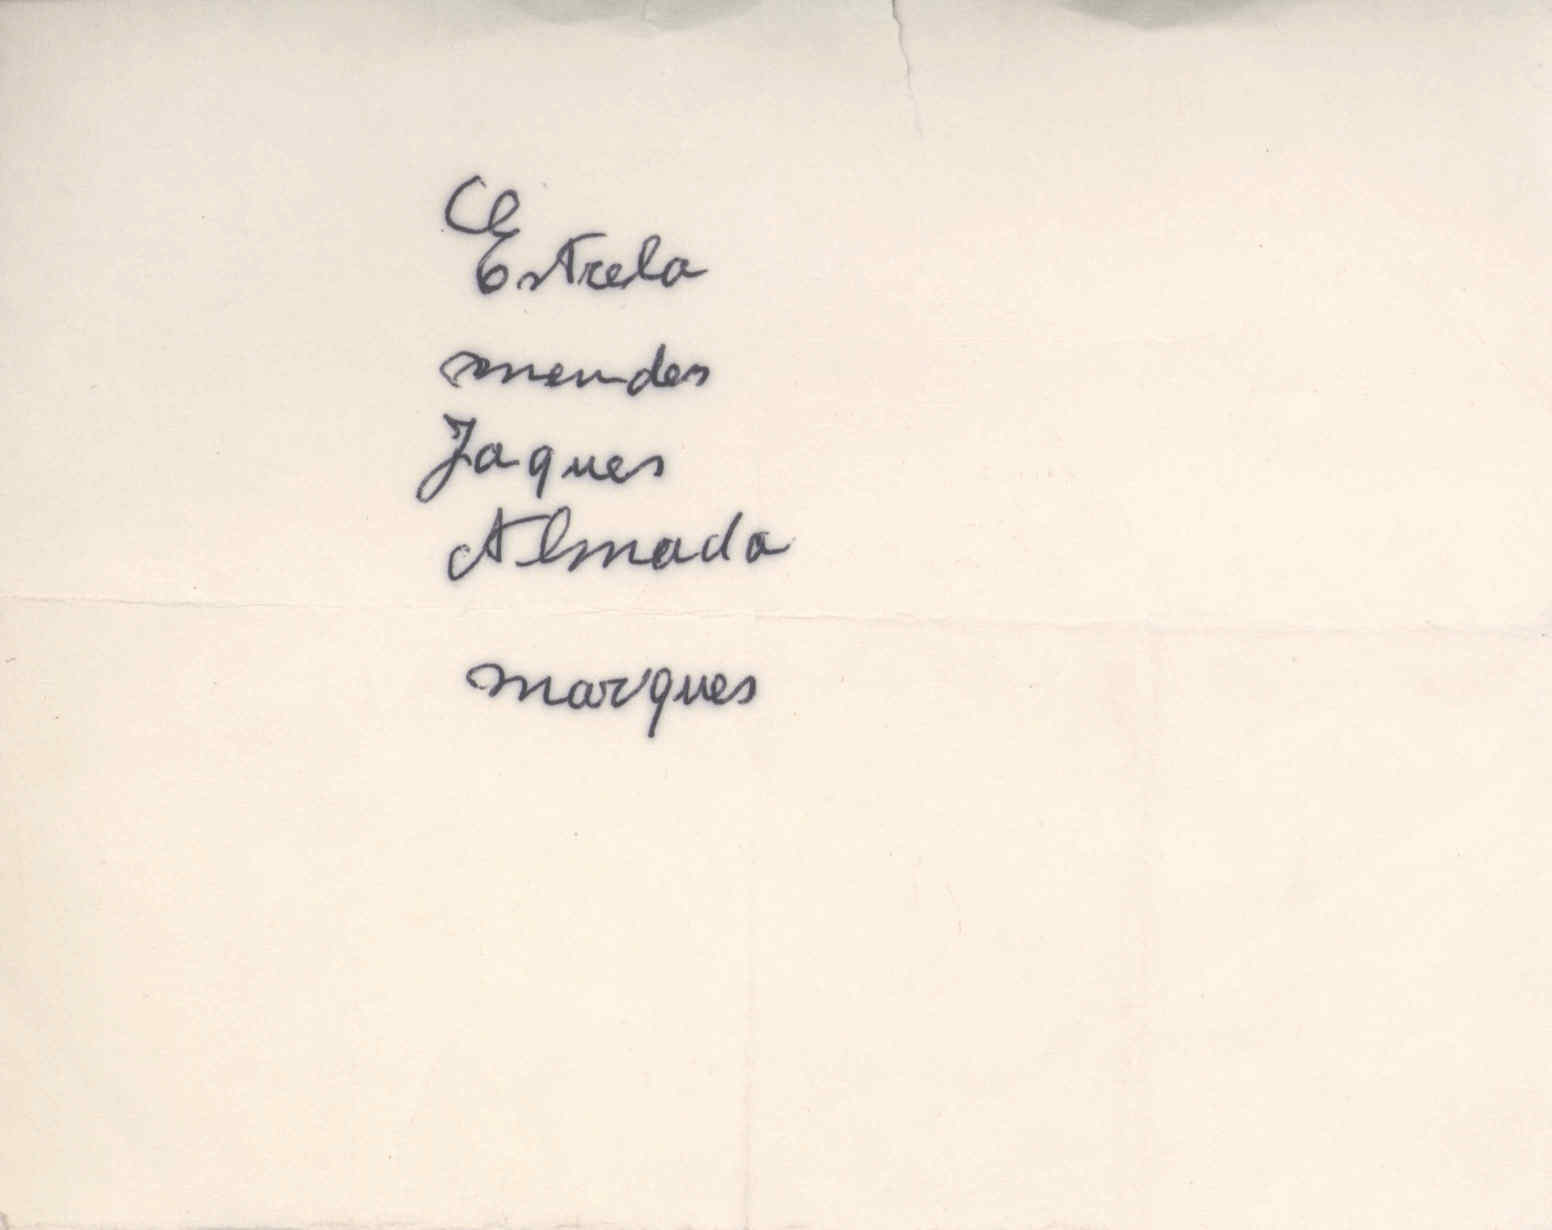 Estrela
mendes
Jaques
Almada
marques